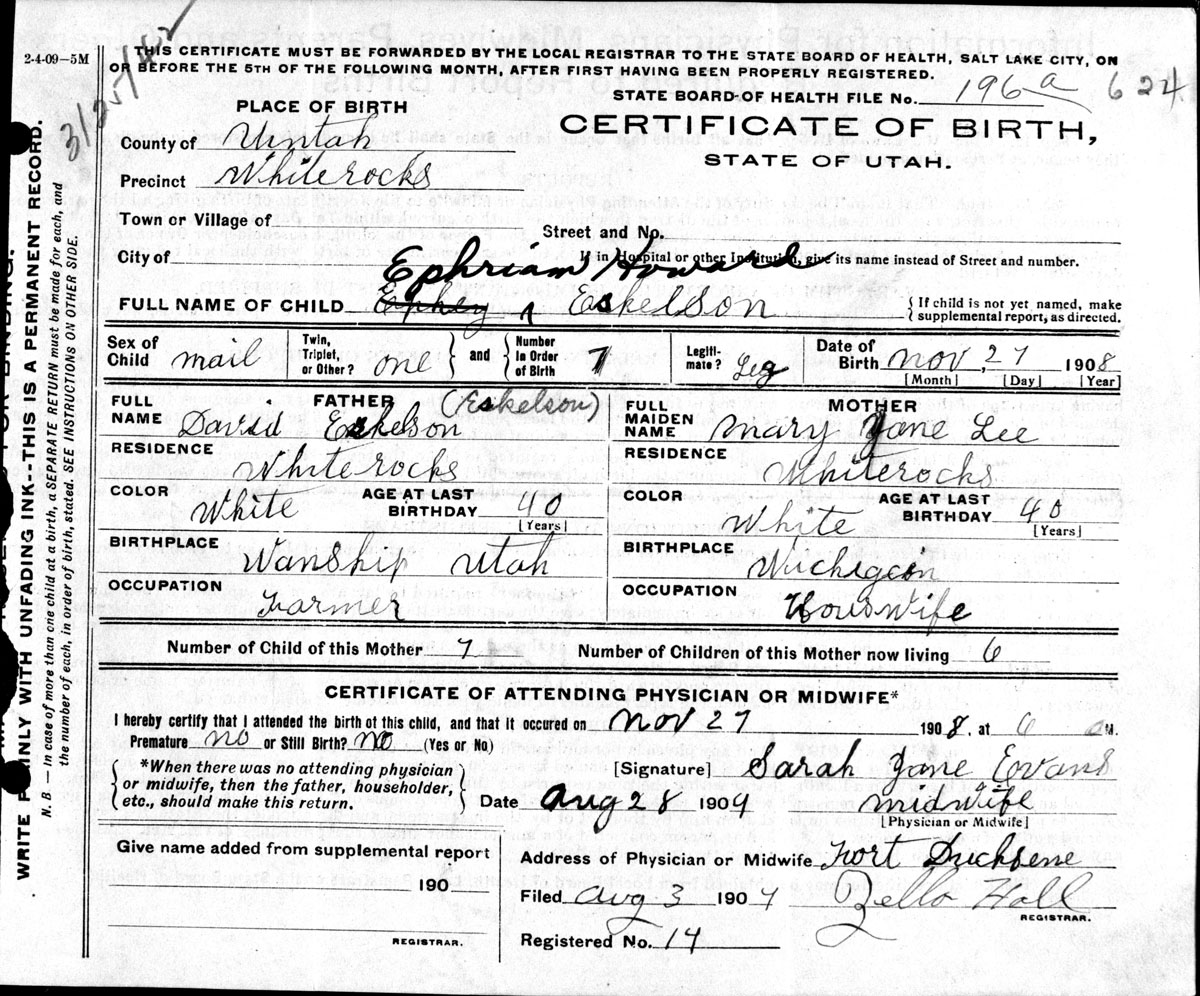 2-4-09—5M
THIS CERTIFICATE MUST BE FORWARDED BY THE LOCAL REGISTRAR TO THE STATE BOARD OF HEALTH, SALT LAKE CITY, ON
OR BEFORE THE 5TH OF THE FOLLOWING MONTH, AFTER FIRST HAVING BEEN PROPERLY REGISTERED.
STATE BOARD OF HEALTH FILE No. 196a 624
PLACE OF BIRTH
CERTIFICATE OF BIRTH,
STATE OF UTAH.
County of Uintah
Precinct Whiterocks
Town or Village of
Street and No.
City of
If in Hospital or other Institution, give its name instead of Street and number.
Ephriam Howard
FULL NAME OF CHILD Ephey Eskelson
{ If child is not yet named, make
supplemental report, as directed.
Sex of Child mail
Twin, Triplet, or Other? one } and { Number in Order of Birth 7
Legitimate? Leg
Date of Birth nov, 27 1908
[Month] [Day] [Year]
FATHER
FULL NAME David Eskelson (Eskelson)
RESIDENCE Whiterocks
COLOR White AGE AT LAST BIRTHDAY 40
[Years]
BIRTHPLACE Wanship Utah
OCCUPATION Farmer
MOTHER
FULL MAIDEN NAME Mary Jane Lee
RESIDENCE Whiterocks
COLOR White AGE AT LAST BIRTHDAY 40
[Years]
BIRTHPLACE Michigain
OCCUPATION Houswife
Number of Child of this Mother 7 Number of Children of this Mother now living 6
CERTIFICATE OF ATTENDING PHYSICIAN OR MIDWIFE*
I hereby certify that I attended the birth of this child, and that it occured on nov 27 1908, at 6 a M.
Premature no or Still Birth? no (Yes or No)
{ *When there was no attending physician
or midwife, then the father, householder,
etc., should make this return. }
[Signature] Sarah Jane Evans
Date Aug 28 1909 midwife
[Physician or Midwife]
Give name added from supplemental report
190
REGISTRAR.
Address of Physician or Midwife Fort Duchsene
Filed Aug 3 190 Zella Hall
REGISTRAR.
Registered No. 14
WRITE PLAINLY WITH UNFADING INK--THIS IS A PERMANENT RECORD.
N. B. — In case of more than one child at a birth, a SEPARATE RETURN must be made for each, and
the number of each, in order of birth, stated. SEE INSTRUCTIONS ON OTHER SIDE.